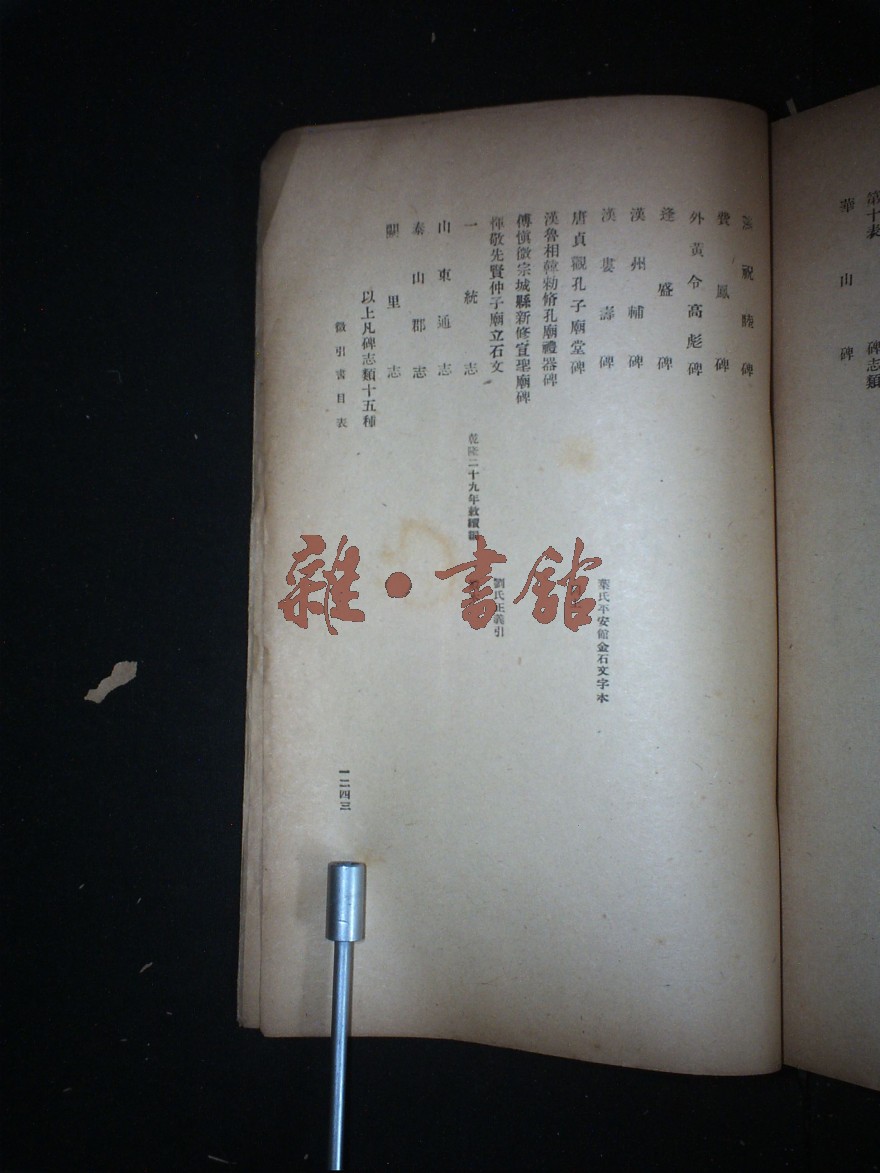 第十表 碑志類
華山碑
漢祝睦碑
費鳳碑
外黃令高彪碑
逢盛碑
漢州輔碑
漢婁壽碑 葉氏平安館金石文字本
唐貞觀孔子廟堂碑
漢魯相韓勅脩孔廟禮器碑
傅愼微宗城縣新修宣聖廟碑
惲敬先賢仲子廟立石文 劉氏正義引
一統志 乾隆二十九年敕續
山東通志
泰山郡志
闕里志
以上凡碑志類十五種
徵引書目表
一二四三
雜·書館